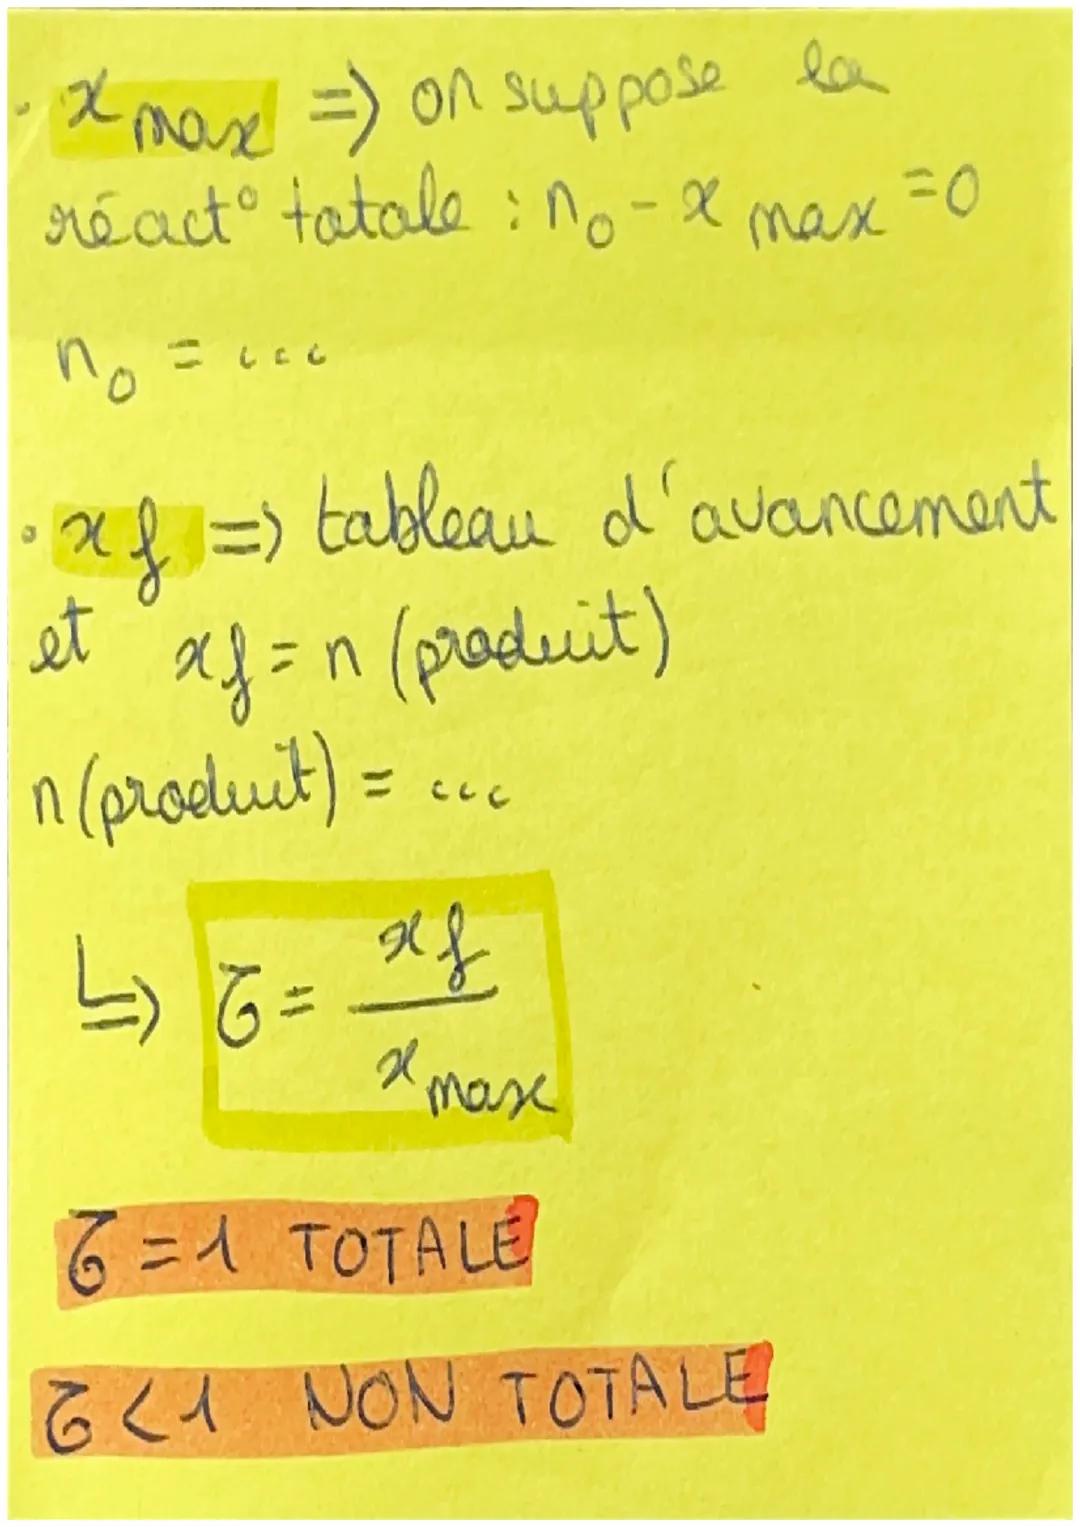 · x max => on suppose la
réact° totale : n₀ - x max = 0
n₀ = ...
· xf => tableau d'avancement
et xf = n (produit)
n (produit) = ...
↳ τ = xf / x max
τ = 1 TOTALE
τ < 1 NON TOTALE